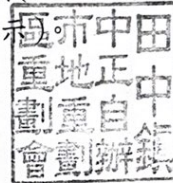 田中鎮
中正自辦
市地重劃
區重劃會